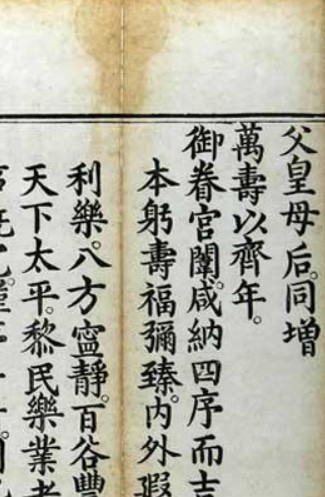 父皇母后。同增
萬壽以齊年。
御眷宮闈。咸納四序而吉
本躬壽福彌臻。内外遐
利樂。八方寍靜。百谷豐
天下太平。黎民樂業者